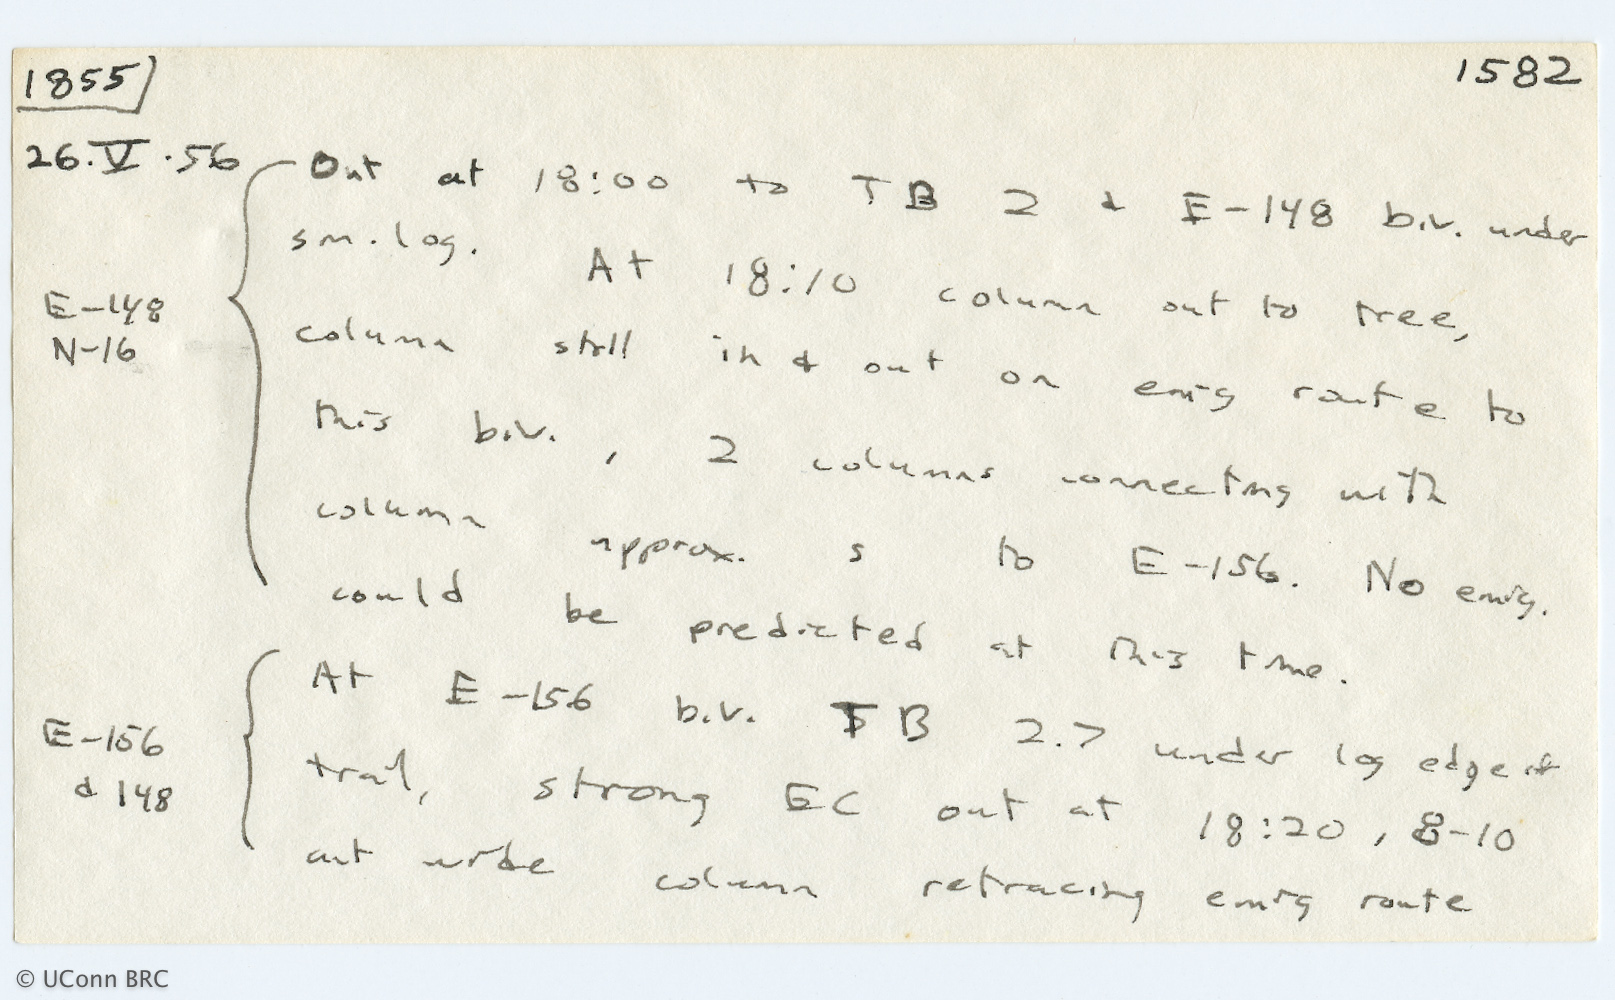 1855
1582
26.V.56
Out at 18:00 to TB 2 & E-148 biv. under
sm. log. At 18:10 column out to tree,
E-148
N-16
column still in & out on emig route to
this biv., 2 columns connecting with
column approx. s to E-156. No emig.
could be predicted at this time.
At E-156 biv. TB 2.7 under log edge of
E-156
& 148
trail, strong EC out at 18:20, 8-10
ant wide column retracing emig route
© UConn BRC